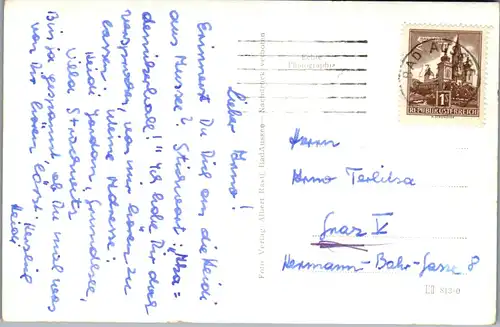 Lieber Arno!
Erinnert Du Dich an die Heidi
aus Mussex? Stichwort: "Maa=
demiaball!" Ich habe Dir doch
versprochen, von mir hören zu
lassen. Meine Adresse:
Heidi Jordan, Grundlsee,
Villa Straußnetz
Bin ja gespannt ob Du mal was
von Dir hören läßt. Herzlich
Heidi
Foto-Verlag Albert Rastl, Bad Aussee — Nachdruck verboten
Echte
Photographie
BAD AU
REPUBLIK ÖSTERREICH
1S
Herrn
Arno Terlitza
Graz V
Hermann-Bahr-Gasse 8
812-0